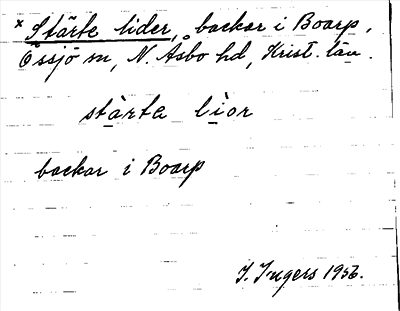 × Stärte lider, backar i Boarp,
Össjö sn, N. Åsbo hd, Krist. län.
stàrte lìor
backar i Boarp
I. Ingers 1956.